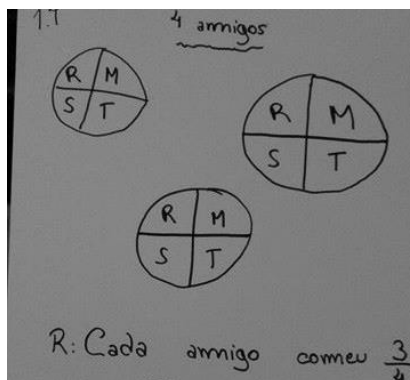 1.1
4 amigos
R M
S T
R M
S T
R M
S T
R: Cada amigo comeu 3/4